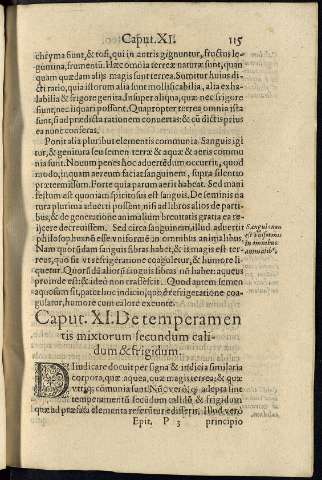 Caput. XI. 115
chryma sunt, & tosi, qui in antris gignuntur, fructus le-
gumina, frumentũ. Hæc omĩa terreæ naturæ sunt, quan
quam quædam alijs magis sunt terrea. Sumitur huius di-
cti ratio, quia istorum alia sunt mollificabilia, alia exha-
labilia & frigore genita. Insuper aliqua, quæ nec frigore
sunt, nec liquari possunt. Quapropter terrea omnia ista
sũt, ad prædicta rationem conuertas: & cũ dictis prius
ea nunc conseras.
Ponit alia pluribus elementis communia. Sanguis igi
tur, & genitura seu semen terræ & aquæ & aeris commu
nia sunt. Nocuum penes hoc aduertẽdum occurrit, quod
modo, in quam aereum faciat sanguinem, supra silentio
prætermissum. Forte quia parum aerit habeat. Sed mani
festum est quoniam spiritosus est sanguis. De seminis na
tura plurima aduerti possent, nisi ad libros alios de parti-
bus, & de generatione animalium breuitatis gratia ea re-
ijcere decreuissem. Sed circa sanguinem, illud aduertit
philosophus nõ esse vnisormẽ in omnibus animalibus.
Nam quorũdam sanguis fibras habet, & is magis est ter-
reus, quo fit vt refrigeratione coaguletur, & humore li-
quetur. Quorũdã aliorũ sanguis fibras nõ habet: aqueus
proinde est: & ideo non crassescit. Quod autem semen
aquosum sit, patet hoc indicio, quod refrigeratione coa-
gulatur, humore cum calore exeunte.
Sanguis non
est vnisormis
in omnibus
animalib'.
Caput. XI. De temperamen
tis mixtorum secundum cali-
dum & frigidum.
Diiudicare docuit per signa & indicia similaria
corpora, quæ aquea, cuæ magis terrea; & quæ
vtriq; communia sunt. Nũc verò, q; adepta sint
temperamentũ secũdum calidũ, & frigidum
quæ ad præsata elementa reserũtur edisserit. Illud vero
Epit. P 3 principio